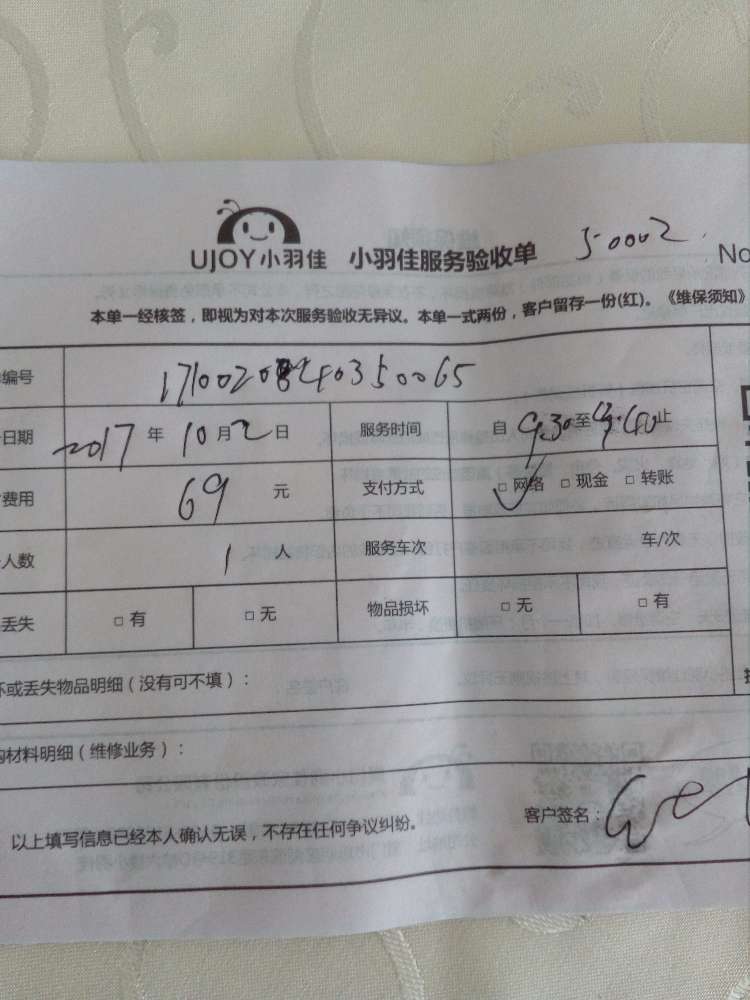 UJOY小羽佳 小羽佳服务验收单 5-0002 No
本单一经核签，即视为对本次服务验收无异议。本单一式两份，客户留存一份(红)。《维保须知》
编号
日期 2017 年 10 月 2 日 服务时间 自 9.30 至 止
费用 69 元 支付方式 □ 网络 □ 现金 □ 转账
人数 1 人 服务车次 车/次
丢失 □ 有 □ 无 物品损坏 □ 无 □ 有
坏或丢失物品明细（没有可不填）：
购材料明细（维修业务）：
以上填写信息已经本人确认无误，不存在任何争议纠纷。 客户签名：